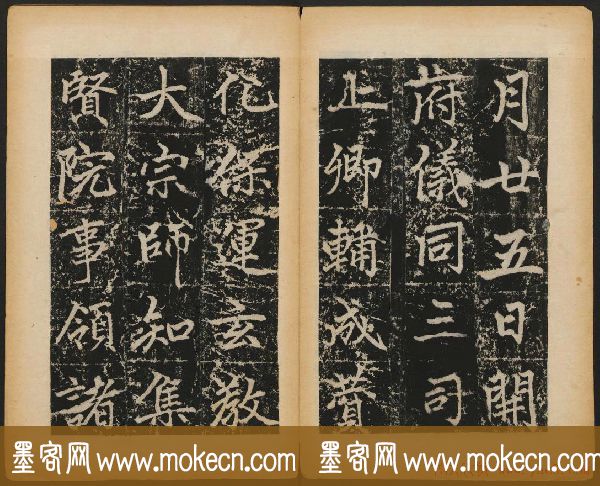 月廿五日開
府儀同三司
上卿輔成贊
化保運玄教
大宗師知集
賢院事領諸
墨客网 www.mokecn.com
墨客网 www.mokecn.com